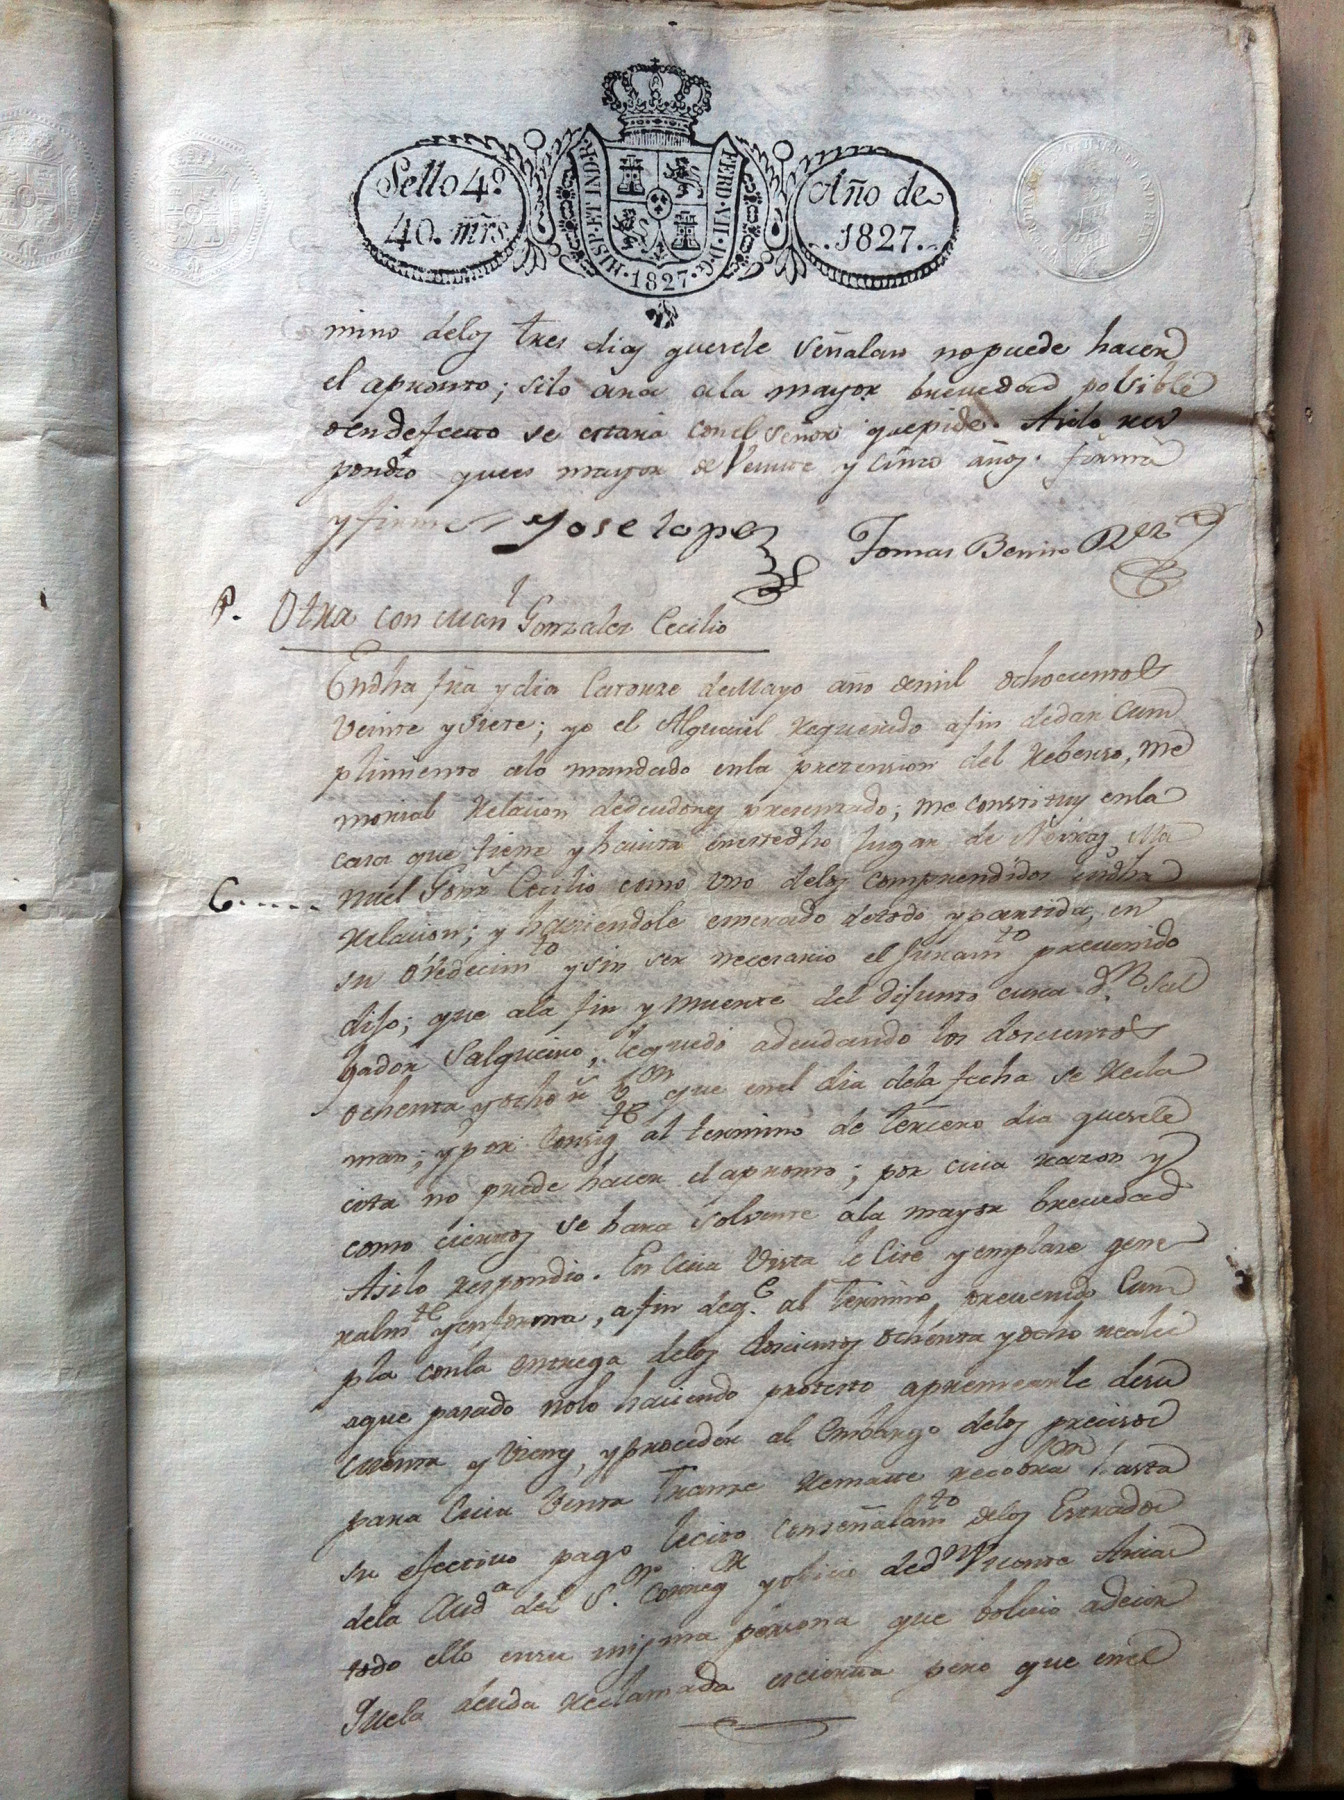 Sello 4º
40. mrs
HISP. ET IND. R.
FERD. VII. D. G.
1827
Año de
1827.
mino delos tres dias quesele señalan nopuede hacer
el apronto; silo ara ala mayor brevedad posible
oendefecto se estará conel señor quepide. Asilo res
pondio quees mayor de Veinte y cinco años. firma
y firmo
Jose lopez
Tomas Benito
P. Otra con Manl Gonzalez Cecilio
Endha fha y dia Catorze deMayo año demil ochocientos
Veinte ysiete; yo el Alguacil Requerido afin dedar Cum
plimiento alo mandado enla pretension del Reberso, me
morial Relacion dedeudores presentado; me constituy enla
casa que tiene y havita enestedho lugar de Ma
C..... nuel Gonz Cecilio como uno delos comprendidos endha
Relacion; y haciendole enterado detodo ypartida, en
su obedecimto ysin ser necesario el Juramto prevenido
dijo; que ala fin y muerte del difunto cura Dn Sal
bador Salgueiro, le quedo adeudando los doscientos
ochenta yocho rs von que enel dia dela fecha se Recla
man; ypor Consigte al termino de tercero dia quesele
cita no puede hacer el apronto; por cuia razon y
como ciertos se hara solvente ala mayor brevedad
Asilo respondio. En Cuia Vista le Cite yemplaze gene
ralmte yenforma, afin deqe al termino prevenido Cum
pla conla entrega delos doscientos ochenta yocho reales
aque pasado nolo haciendo protesto apremearle desu
Cuenta y Vienes, yproceder al embargo delos precisos
para Cuia Venta Tranze Remate hasta
su efectivo pago le cito conseñalamto delos Estrados
dela Auda del Sor Corregr yoficio dedn Vicente Arias
todo ello ensu misma persona que bolvio adecir
Quela deuda Reclamada escierta pero que enel